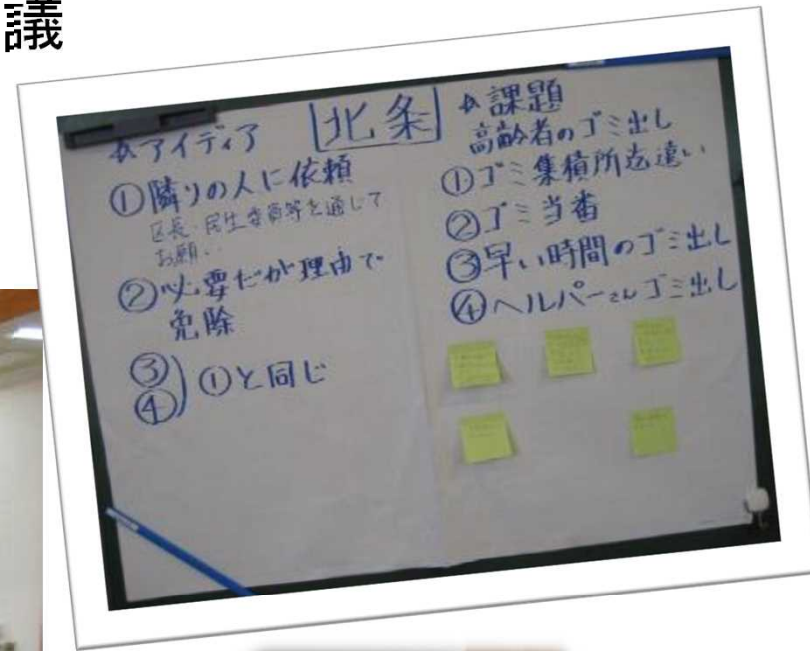 議
北条
☆アイディア
①隣りの人に依頼
区長・民生委員等を通して
お願い
②必要だが理由で
免除
③
④
①と同じ
☆課題
高齢者のゴミ出し
①ゴミ集積所迄遠い
②ゴミ当番
③早い時間のゴミ出し
④ヘルパーさんゴミ出し